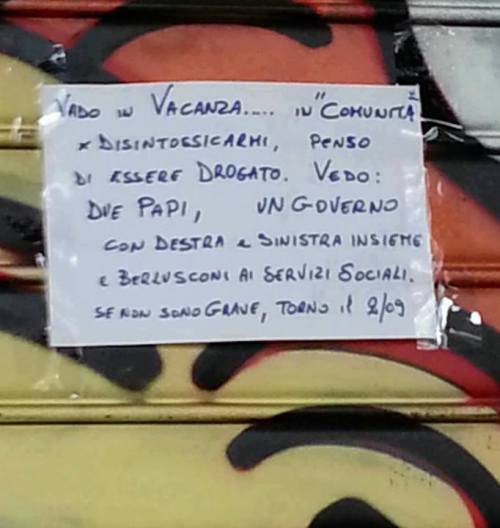 VADO IN VACANZA..... IN "COMUNITÀ"
x DISINTOSSICARMI, PENSO
DI ESSERE DROGATO. VEDO:
DUE PAPI, UN GOVERNO
CON DESTRA e SINISTRA INSIEME
e BERLUSCONI AI SERVIZI SOCIALI.
SE NON SONO GRAVE, TORNO il 2/09